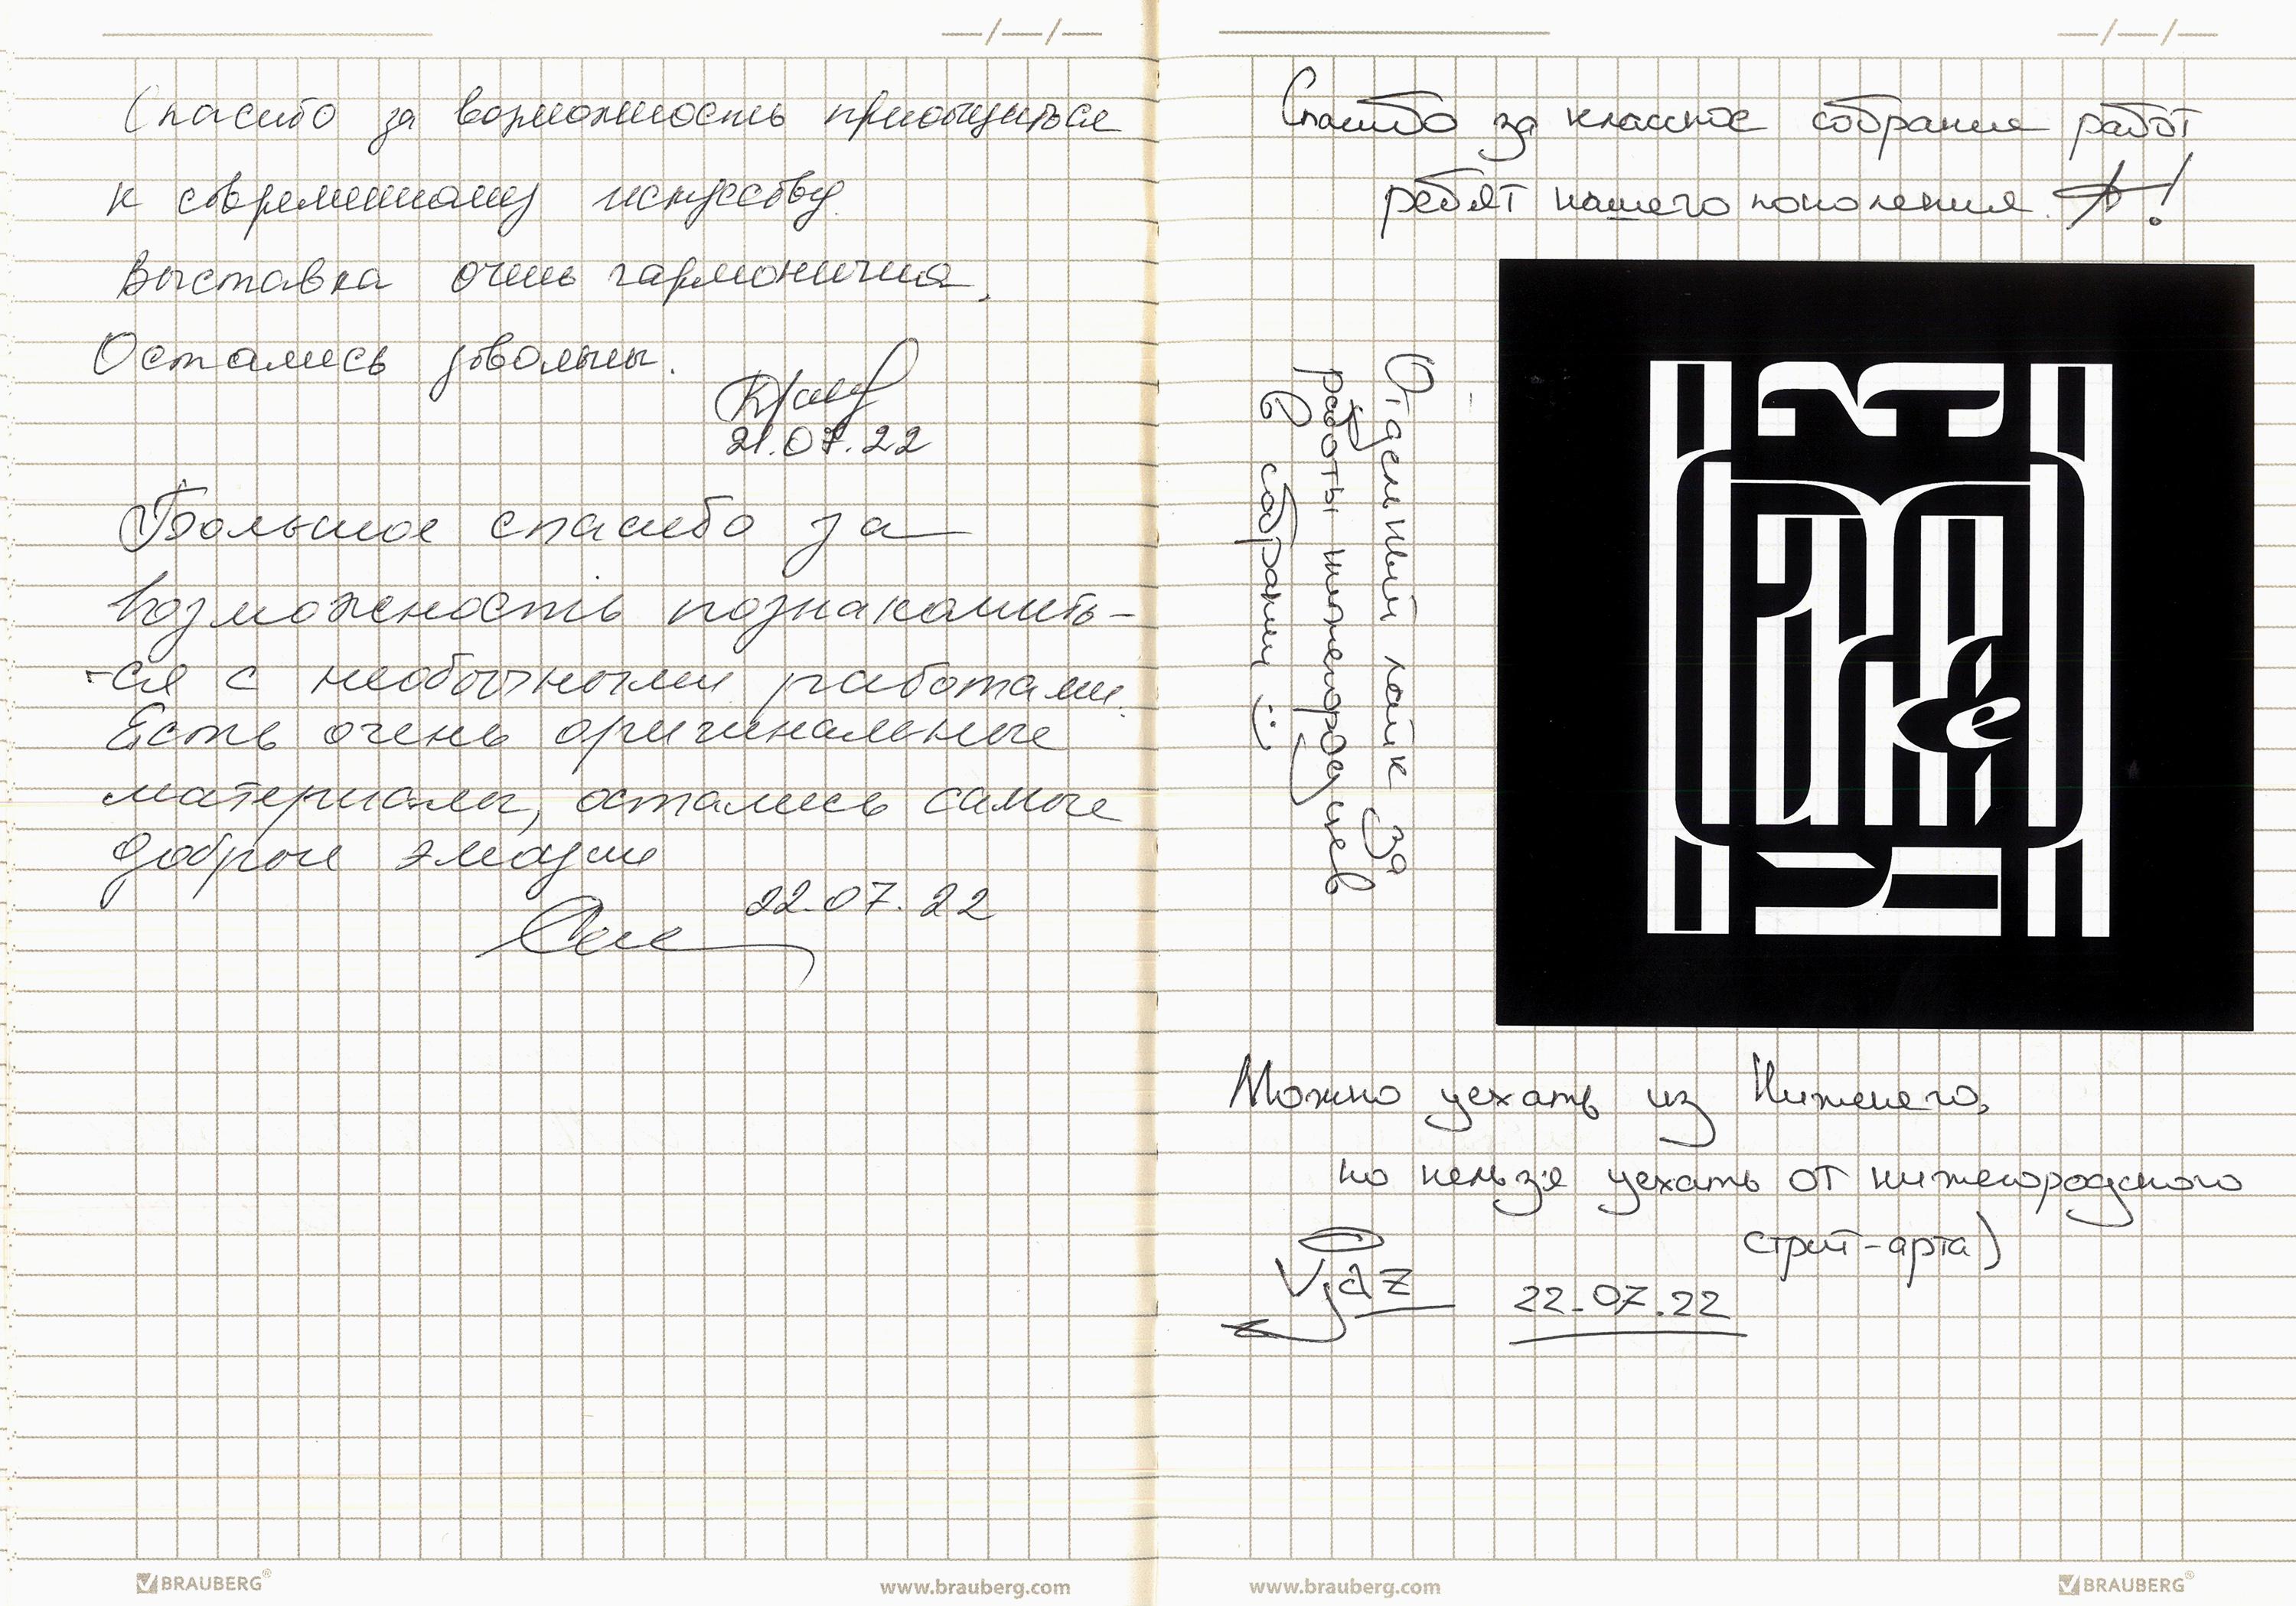 Спасибо за возможность приобщиться
к современному искусству.
Выставка очень гармонична.
Остались довольны.
21.07.22
Большое спасибо за
возможность познакомить-
-ся с необычными работами.
Есть очень оригинальные
материалы, остались самые
добрые эмоции
22.07.22
BRAUBERG®
www.brauberg.com
Спасибо за классное собрание работ
ребят нашего поколения. !
Отдельный лайк за
работы нижегородцев
в собрании :)
Можно уехать из Нижнего,
но нельзя уехать от нижегородского
стрит-арта)
Vjaz
22.07.22
www.brauberg.com
BRAUBERG®